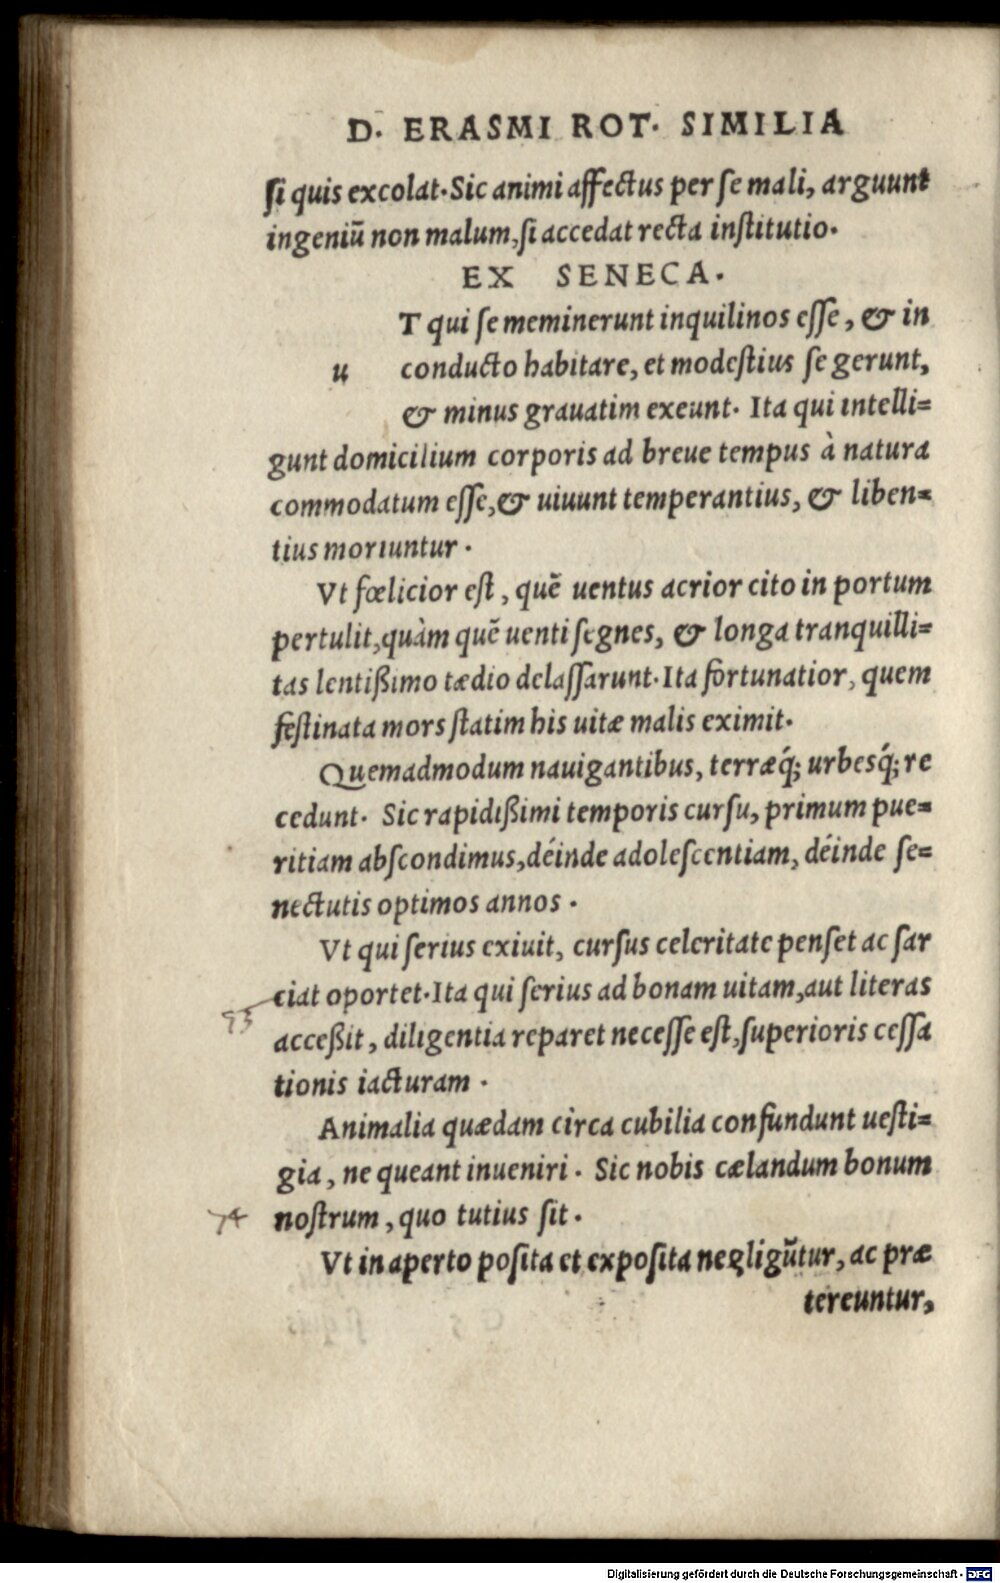 D. ERASMI ROT. SIMILIA
ſi quis excolat. Sic animi affectus per ſe mali, arguunt
ingeniū non malum, ſi accedat recta inſtitutio.
EX SENECA.
T qui ſe meminerunt inquilinos eſſe, & in
u conducto habitare, et modeſtius ſe gerunt,
& minus grauatim exeunt. Ita qui intelli=
gunt domicilium corporis ad breue tempus à natura
commodatum eſſe, & uiuunt temperantius, & liben=
tius moriuntur.
Vt fœlicior eſt, quē uentus acrior cito in portum
pertulit, quàm quē uenti ſegnes, & longa tranquilli=
tas lentißimo tædio delaſſarunt. Ita fortunatior, quem
feſtinata mors ſtatim his uitæ malis eximit.
Quemadmodum nauigantibus, terræq́; urbesq́; re
cedunt. Sic rapidißimi temporis curſu, primum pue=
ritiam abſcondimus, déinde adoleſcentiam, déinde ſe=
nectutis optimos annos.
Vt qui ſerius exiuit, curſus celeritate penſet ac ſar
ciat oportet. Ita qui ſerius ad bonam uitam, aut literas
73
acceßit, diligentia reparet neceſſe eſt, ſuperioris ceſſa
tionis iacturam.
Animalia quædam circa cubilia confundunt ueſti=
gia, ne queant inueniri. Sic nobis cælandum bonum
74 noſtrum, quo tutius ſit.
Vt in aperto poſita et expoſita negligūtur, ac præ
tereuntur,
Digitalisierung gefördert durch die Deutsche Forschungsgemeinschaft - DFG